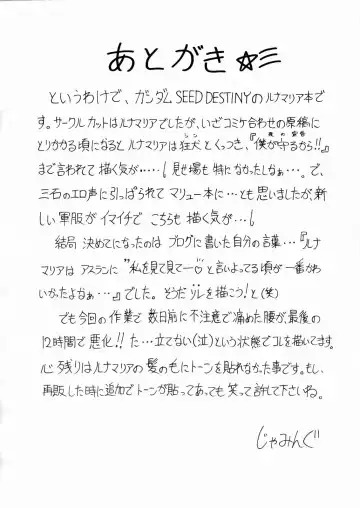 あとがき☆彡
というわけで、ガンダムSEED DESTINYのルナマリア本で
す。サークルカットはルナマリアでしたが、いざコミケ合わせの原稿に
とりかかる頃になるとルナマリアは狂犬とくっつき、『僕が守るから!!』
まで言われて描く気が‥‥!見せ場も特になかったしなぁ…。で、
三石のエロ声に引っぱられてマリュー本に…とも思いましたが、新
しい軍服がイマイチで こちらも 描く気が…!
結局 決めてになったのは ブログに書いた自分の言葉…『ルナ
マリアは アスランに "私を見て見てー♡"と言いよってる頃が一番かわ
いかったよなぁ…』でした。そうだソレを描こう!と(笑)
でも今回の作業で 数日前に不注意で痛めた腰が、最後の
12時間で 悪化!!た…立てない(泣)という状態でコレを描いてます。
心残りはルナマリアの髪の毛にトーンを貼れなかった事です。もし、
再販した時に追加でトーンが貼ってあっても 笑って許して下さいね。
じゃみんぐ